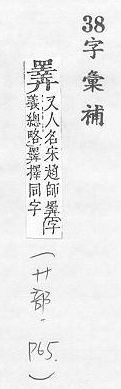 38字彙補
𢍰
又人名宋趙師𢍰字
義總略𢍰擇同字
(廾部. P65.)